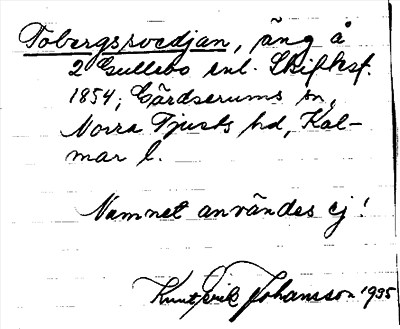 Tobergssvedjan, äng å
2 Gullebo enl. Skifksf.
1854; Gärdserums sn,
Norra Tjusts hd, Kal-
mar l.
Namnet användes ej!
Knut Erik Johansson 1935